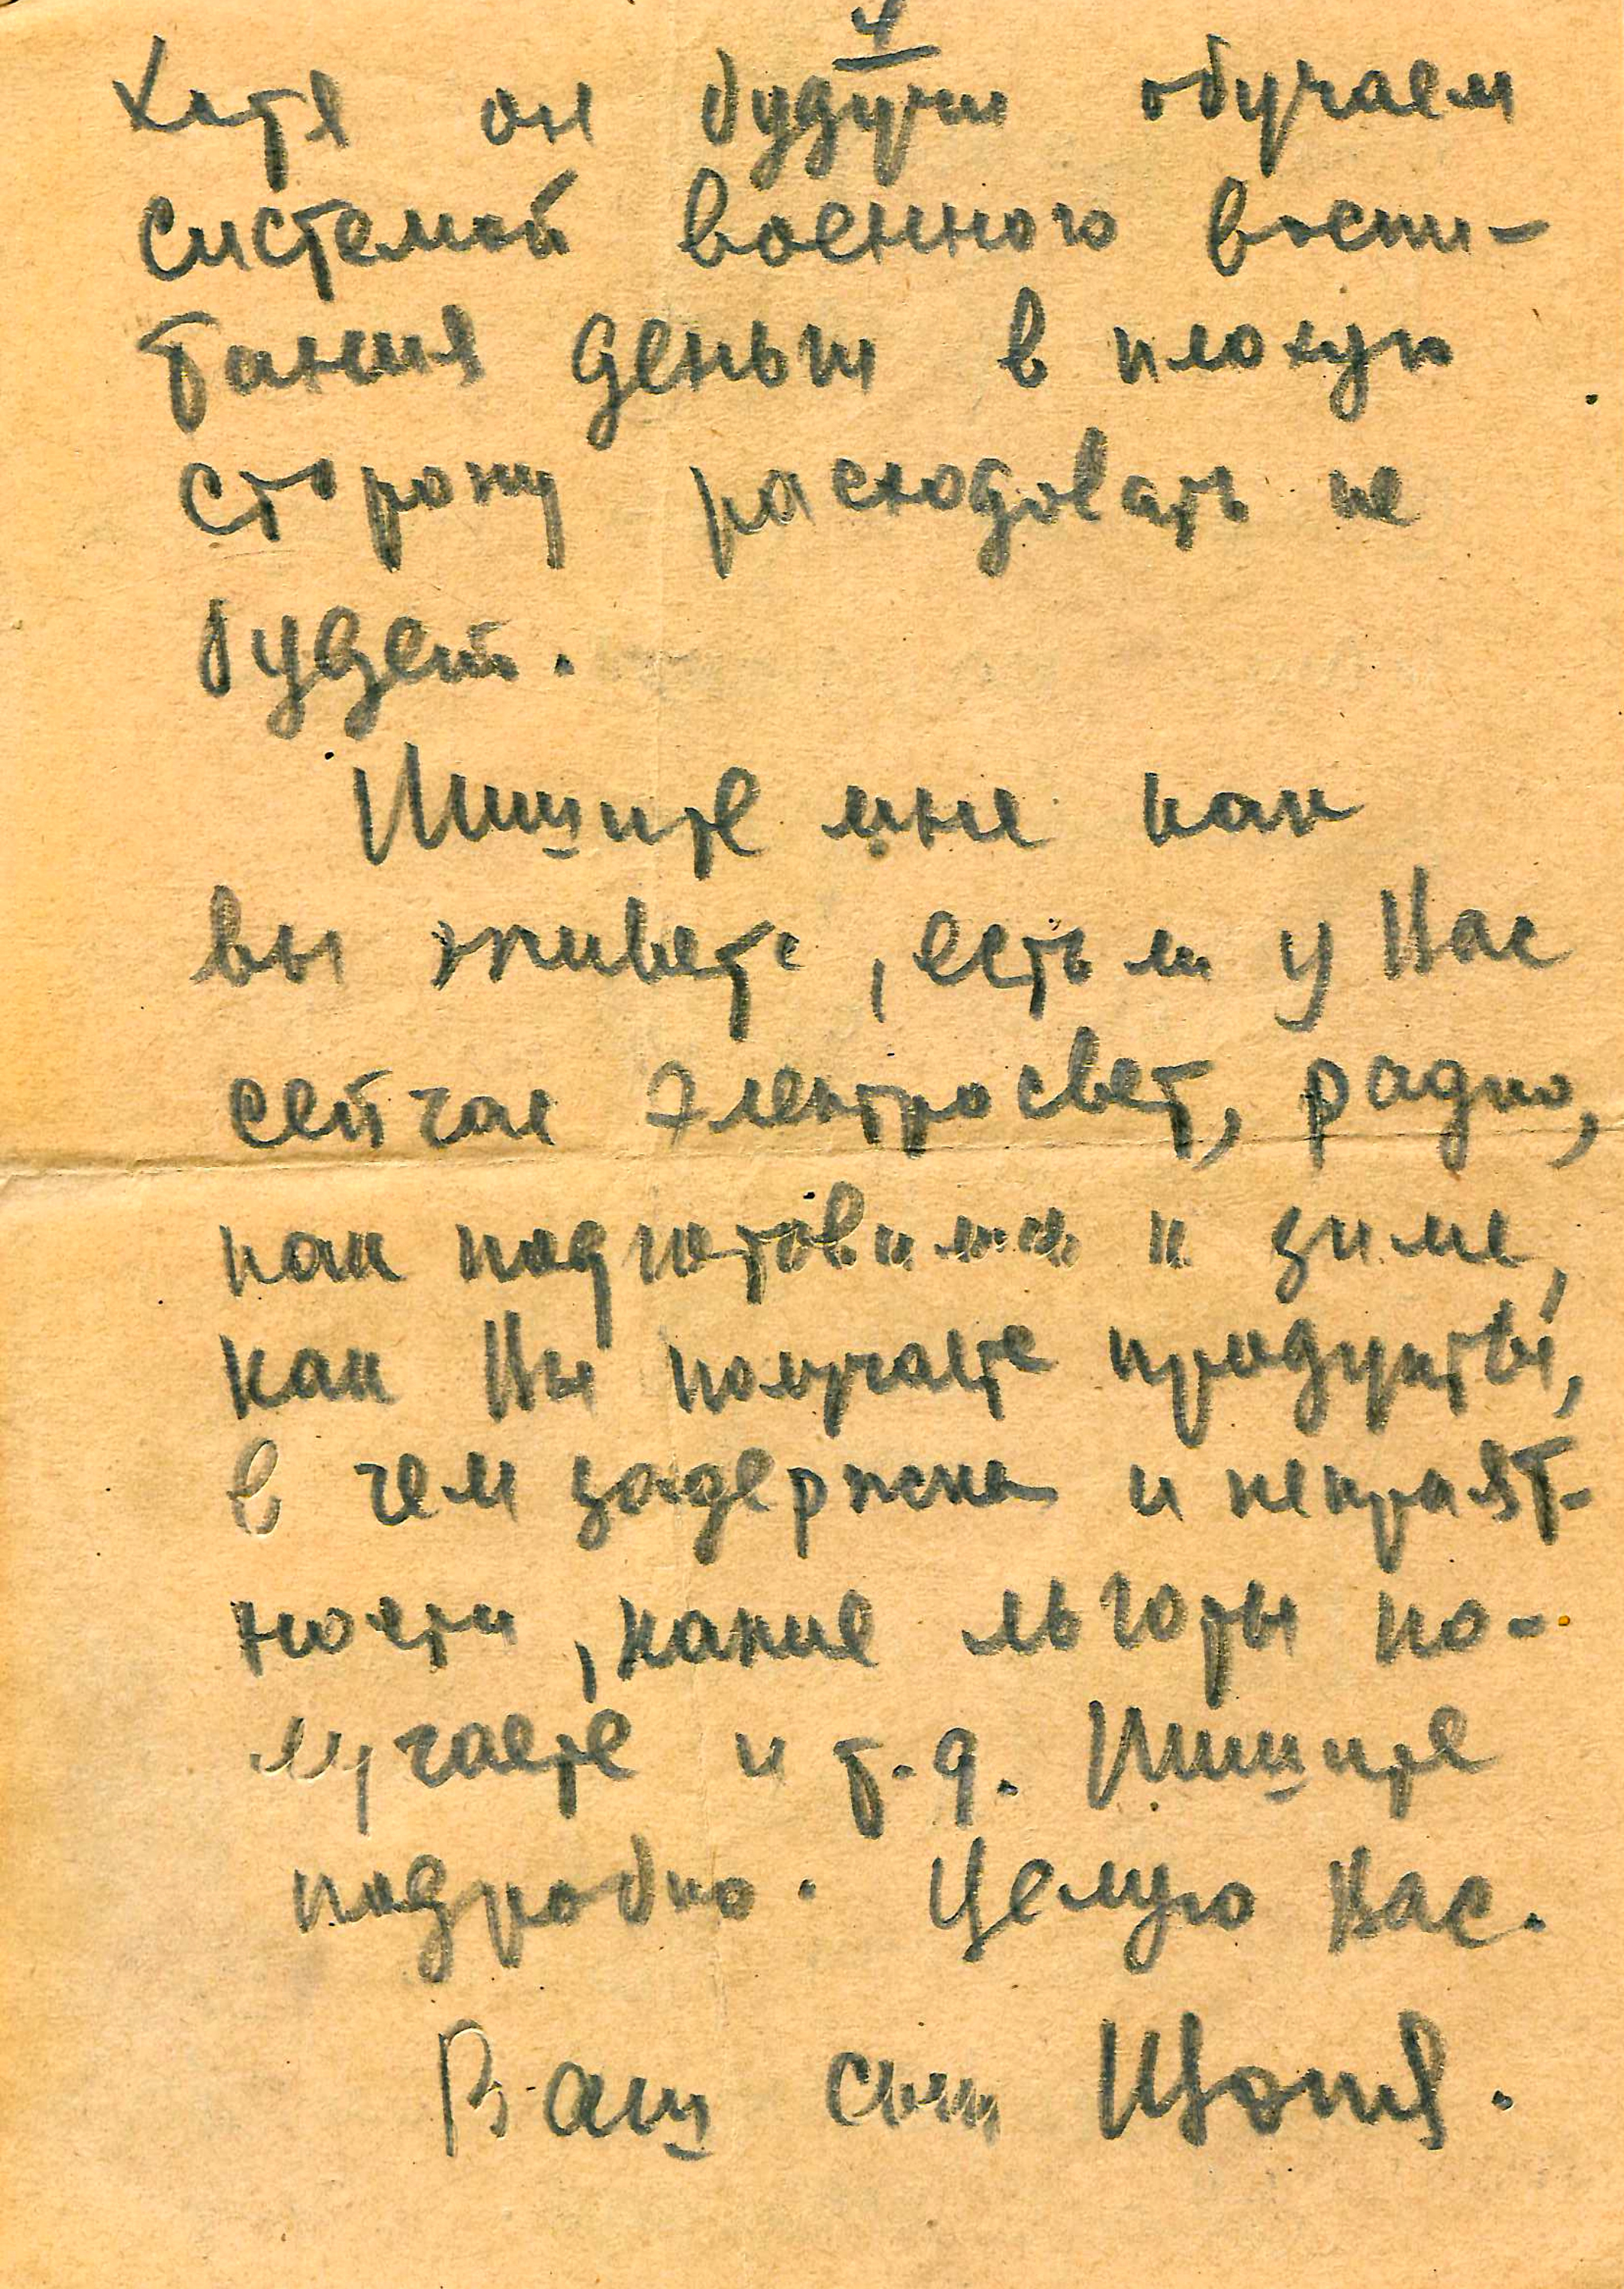 4
Хотя он будучи обучаем
системой военного воспи-
тания деньги в плохую
сторону расходовать не
будет.
Пишите мне как
вы живете, есть ли у Вас
сейчас электросвет, радио,
как подготовились к зиме,
как Вы получаете продукты,
в чем задержка и неприят-
ности, какие льготы по-
лучаете и т.д. Пишите
подробно. Целую Вас.
Ваш сын